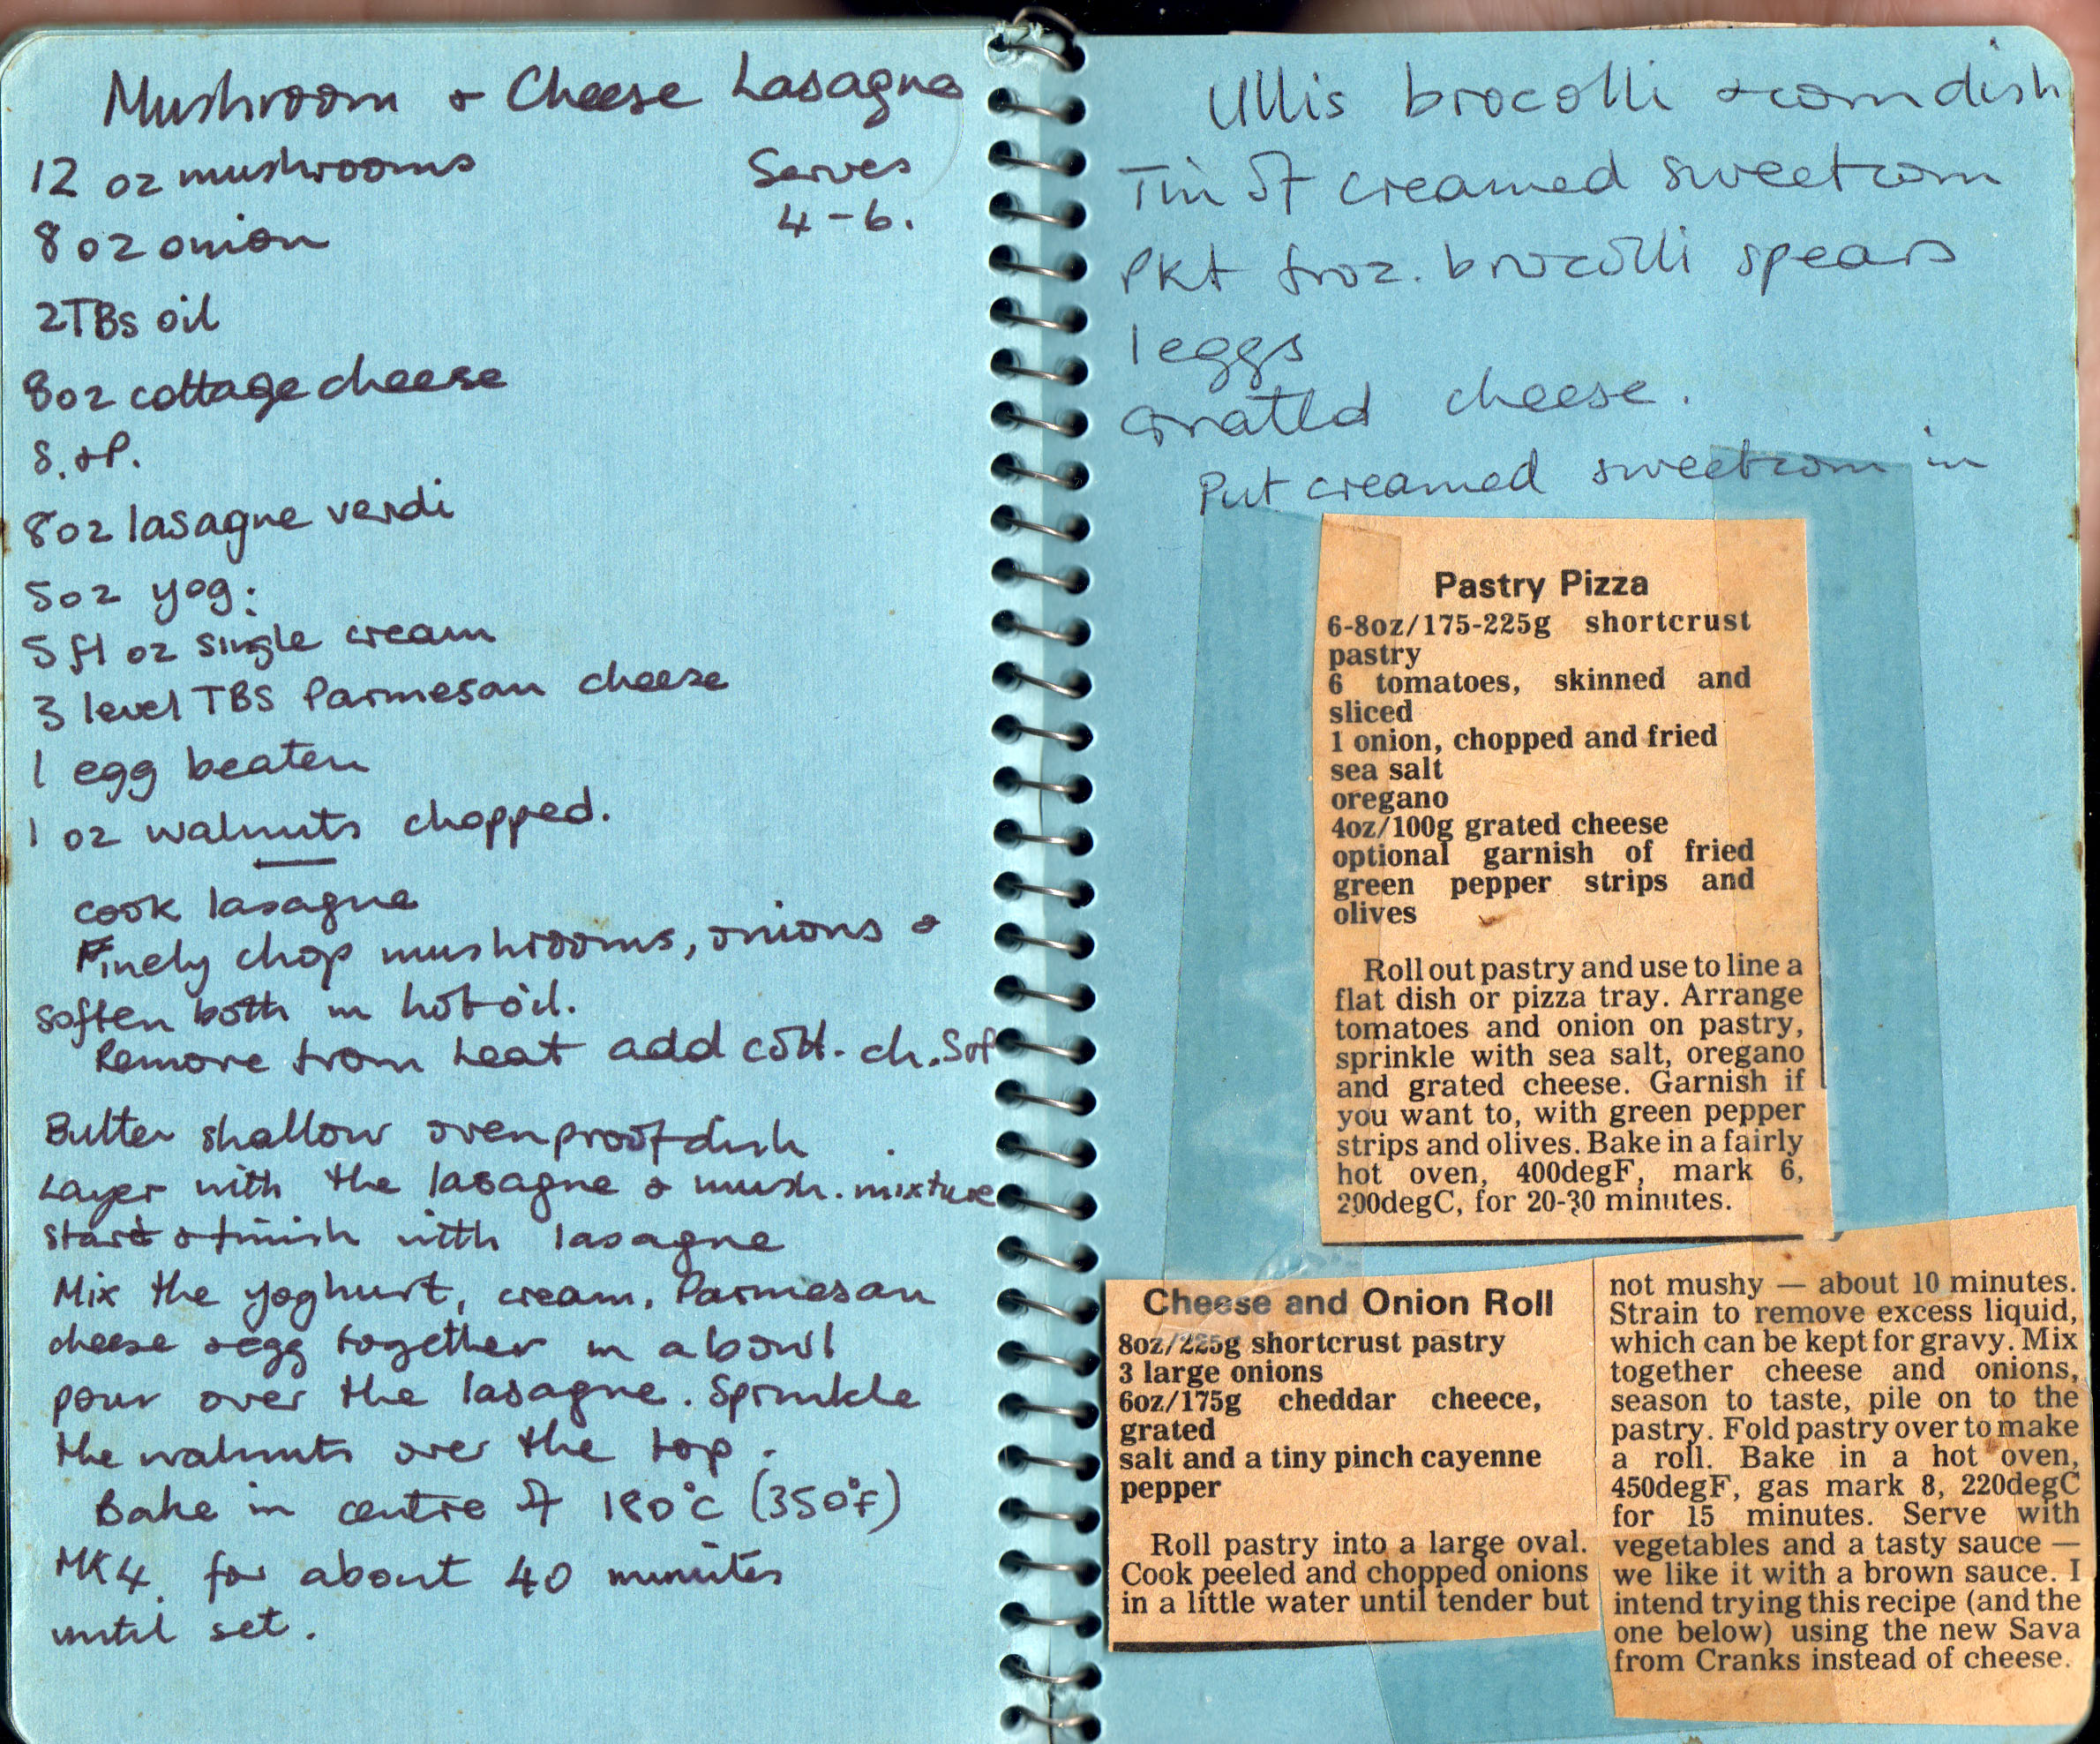 Mushroom & Cheese Lasagne
12 oz mushrooms
Serves
4-6.
8 oz onion
2TBs oil
8oz cottage cheese
S. & P.
8oz lasagne verdi
5oz yog:
5 fl oz single cream
3 level TBS Parmesan cheese
1 egg beaten
1 oz walnuts chopped.
cook lasagne
Finely chop mushrooms, onions &
soften both in hot oil.
Remove from heat add cott. ch. S&P
Butter shallow ovenproof dish
Layer with the lasagne & mush. mixture
start & finish with lasagne
Mix the yoghurt, cream, Parmesan
cheese & egg together in a bowl
pour over the lasagne. Sprinkle
the walnuts over the top.
Bake in centre of 180°C (350°F)
MK4, for about 40 minutes
until set.
Ullis brocolli & corn dish
Tin of creamed sweetcorn
Pkt froz. brocolli spears
1 eggs
Grated cheese.
Put creamed sweetcorn in
Pastry Pizza
6-8oz/175-225g shortcrust
pastry
6 tomatoes, skinned and
sliced
1 onion, chopped and fried
sea salt
oregano
4oz/100g grated cheese
optional garnish of fried
green pepper strips and
olives
Roll out pastry and use to line a
flat dish or pizza tray. Arrange
tomatoes and onion on pastry,
sprinkle with sea salt, oregano
and grated cheese. Garnish if
you want to, with green pepper
strips and olives. Bake in a fairly
hot oven, 400degF, mark 6,
200degC, for 20-30 minutes.
Cheese and Onion Roll
8oz/225g shortcrust pastry
3 large onions
6oz/175g cheddar cheece,
grated
salt and a tiny pinch cayenne
pepper
Roll pastry into a large oval.
Cook peeled and chopped onions
in a little water until tender but
not mushy — about 10 minutes.
Strain to remove excess liquid,
which can be kept for gravy. Mix
together cheese and onions,
season to taste, pile on to the
pastry. Fold pastry over to make
a roll. Bake in a hot oven,
450degF, gas mark 8, 220degC
for 15 minutes. Serve with
vegetables and a tasty sauce —
we like it with a brown sauce. I
intend trying this recipe (and the
one below) using the new Sava
from Cranks instead of cheese.